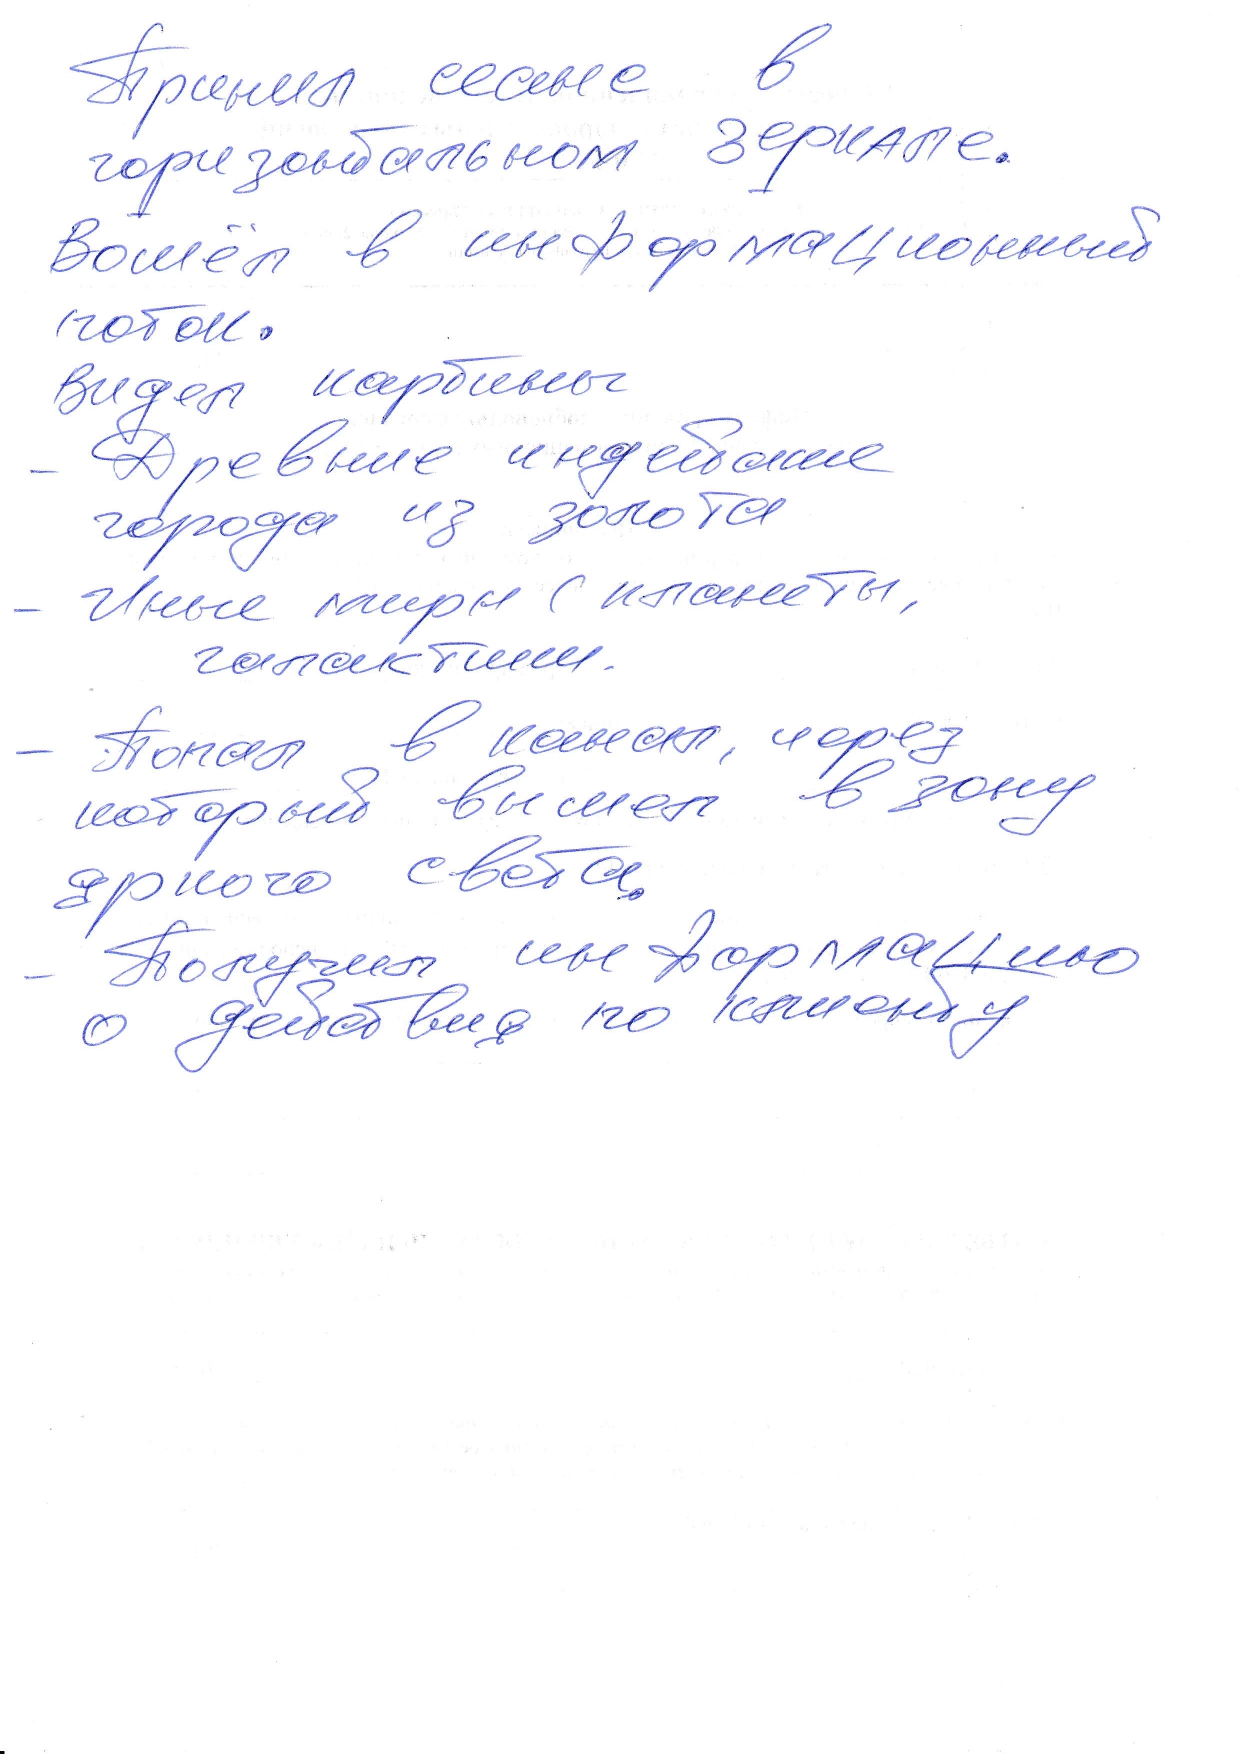 Принял сеанс в
горизонтальном зеркале.
Вошёл в информационный
поток.
Видел картины
- Древние индейские
города из золота
- Иные миры (планеты,
галактики.
- Попал в канал, через
который вышел в зону
яркого света.
- Получил информацию
о действия по клиенту